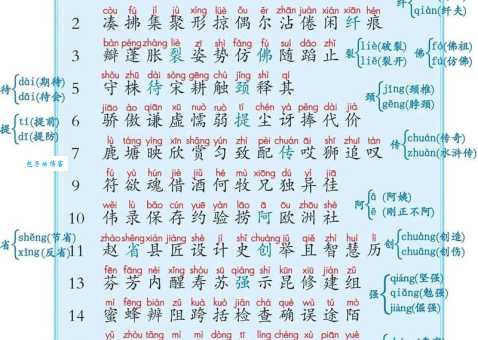 纤{qiàn(纤夫)
còu fú jí jù xíng lüè ǒu ěr zhān juàn xián xiān hén
2 凑 拂 集 聚 形 掠 偶 尔 沾 倦 闲 纤 痕
bàn péng zhàng liè zī shì fǎng fú suí dǎo zhǐ
3 瓣 蓬 胀 裂 姿 势 仿 佛 随 蹈 止 裂{liè(破裂) liě(裂开) 佛{fó(佛祖) fú(仿佛)
shǒu zhū dài sòng gēng chù jǐng shì qí
待{dài(期待) dāi(待会) 5 守 株 待 宋 耕 触 颈 释 其 颈{jǐng(颈椎) gěng(脖颈)
jiāo ào qiān xū nuò ruò tí chén yà pěng dài jià
提{tí(提前) dī(提防) 6 骄 傲 谦 虚 懦 弱 提 尘 讶 捧 代 价
lù táng yìng xīn shǎng yún zhì pèi chuán āi shī zhuī tàn
7 鹿 塘 映 欣 赏 匀 致 配 传 哎 狮 追 叹 传{chuán(传奇) zhuàn(水浒传)
包子的博客
fú yù hún jiè jiǔ hé mù xiōng dú yì jiā
9 符 欲 魂 借 酒 何 牧 兄 独 异 佳
wěi lù bǎo cún yuē yàn lāo ā ōu zhōu shè
10 伟 录 保 存 约 验 捞 阿 欧 洲 社 阿{ā (阿姨) ē (刚正不阿)
zhào shěng xiàn jiàng shè jì shǐ chuàng jǔ qiě zhì huì lì
省{shěng(节省) xǐng(反省) 11 赵 省 县 匠 设 计 史 创 举 且 智 慧 历 创{chuàng(创造) chuāng(创伤)
fēn fāng nèi xǐng shòu sū qiáng shì kūn xiū jiàn zǔ
13 芬 芳 内 醒 寿 苏 强 示 昆 修 建 组 强{qiáng(坚强) qiǎng(勉强) jiàng(倔强)
mì fēng biàn zǔ kuà kuò jiǎn chá què wù tú mò
14 蜜 蜂 辨 阻 跨 括 检 查 确 误 途 陌